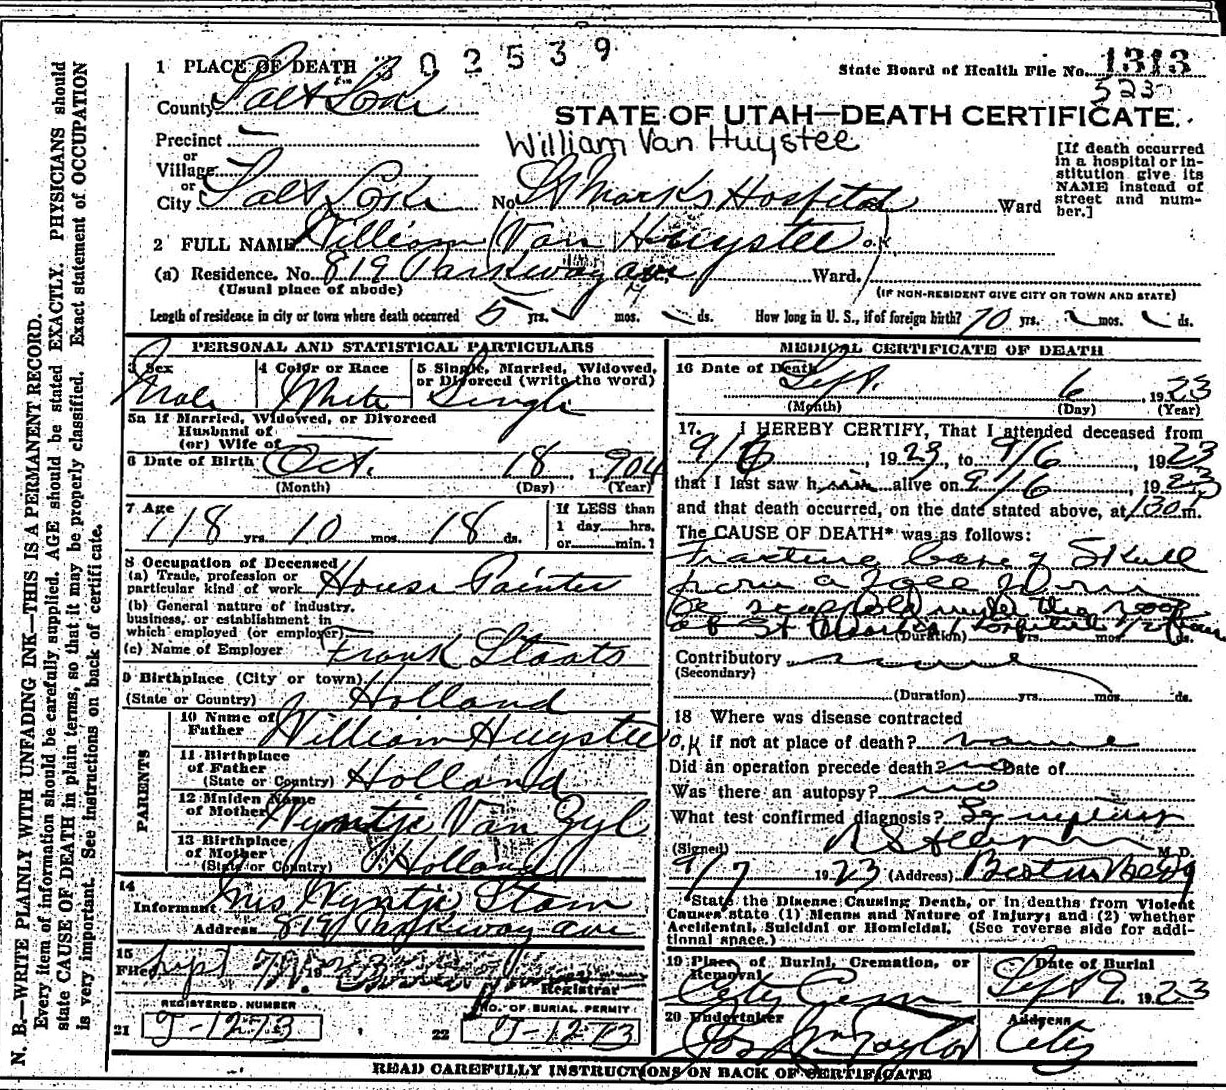 302539
1 PLACE OF DEATH
State Board of Health File No. 1313
523
County Salt Lake
STATE OF UTAH—DEATH CERTIFICATE.
Precinct
William Van Huystee
or
Village
or
City Salt Lake No. St Marks Hospital Ward
[If death occurred
in a hospital or in-
stitution give its
NAME instead of
street and num-
ber.]
2 FULL NAME William Van Huystee O.K.
(a) Residence. No. 819 Parkway ave Ward.
(Usual place of abode)
(IF NON-RESIDENT GIVE CITY OR TOWN AND STATE)
Length of residence in city or town where death occurred 5 yrs. mos. ds. How long in U. S., if of foreign birth? 10 yrs. mos. ds.
PERSONAL AND STATISTICAL PARTICULARS
3 Sex
Male
4 Color or Race
White
5 Single, Married, Widowed,
or Divorced (write the word)
Single
5a If Married, Widowed, or Divorced
Husband of
(or) Wife of
6 Date of Birth Oct. 18 1904
(Month) (Day) (Year)
7 Age
18 yrs. 10 mos. 18 ds.
If LESS than
1 day hrs.
or min.?
8 Occupation of Deceased
(a) Trade, profession or
particular kind of work House Painter
(b) General nature of industry,
business, or establishment in
which employed (or employer)
(c) Name of Employer Frank Staats
9 Birthplace (City or town)
(State or Country) Holland
PARENTS
10 Name of
Father William Huystee
11 Birthplace
of Father
(State or Country) Holland
12 Maiden Name
of Mother Wyntje Van Zyl
13 Birthplace
of Mother
(State or Country) Holland
14
Informant Mrs Wyntje Stam
Address 819 Parkway ave
15
Filed Sept 1923
Registrar
REGISTERED NUMBER
21 J-1273
NO. OF BURIAL PERMIT
22 J-1273
MEDICAL CERTIFICATE OF DEATH
16 Date of Death
Sept. 6, 1923
(Month) (Day) (Year)
17. I HEREBY CERTIFY, That I attended deceased from
9/6, 1923, to 9/6, 1923
that I last saw him alive on 9/6, 1923
and that death occurred, on the date stated above, at 130 m.
The CAUSE OF DEATH* was as follows:
Fracture Base of Skull
from a fall from
scaffold under the roof
of St Mark's Hospital
(Duration) yrs. mos. ds.
Contributory none
(Secondary)
(Duration) yrs. mos. ds.
18 Where was disease contracted
O.K if not at place of death?
Did an operation precede death? no Date of
Was there an autopsy? no
What test confirmed diagnosis? Symptoms
(Signed) M. D.
9/7 1923 (Address) Boston Bldg
*State the Disease Causing Death, or in deaths from Violent
Causes state (1) Means and Nature of Injury; and (2) whether
Accidental, Suicidal or Homicidal. (See reverse side for addi-
tional space.)
19 Place of Burial, Cremation, or
Removal
City Cem
Date of Burial
Sept 9, 1923
20 Undertaker
Jos Wm Taylor
Address
City
READ CAREFULLY INSTRUCTIONS ON BACK OF CERTIFICATE
N. B.—WRITE PLAINLY WITH UNFADING INK—THIS IS A PERMANENT RECORD.
Every item of information should be carefully supplied. AGE should be stated EXACTLY. PHYSICIANS should
state CAUSE OF DEATH in plain terms, so that it may be properly classified. Exact statement of OCCUPATION
is very important. See instructions on back of certificate.